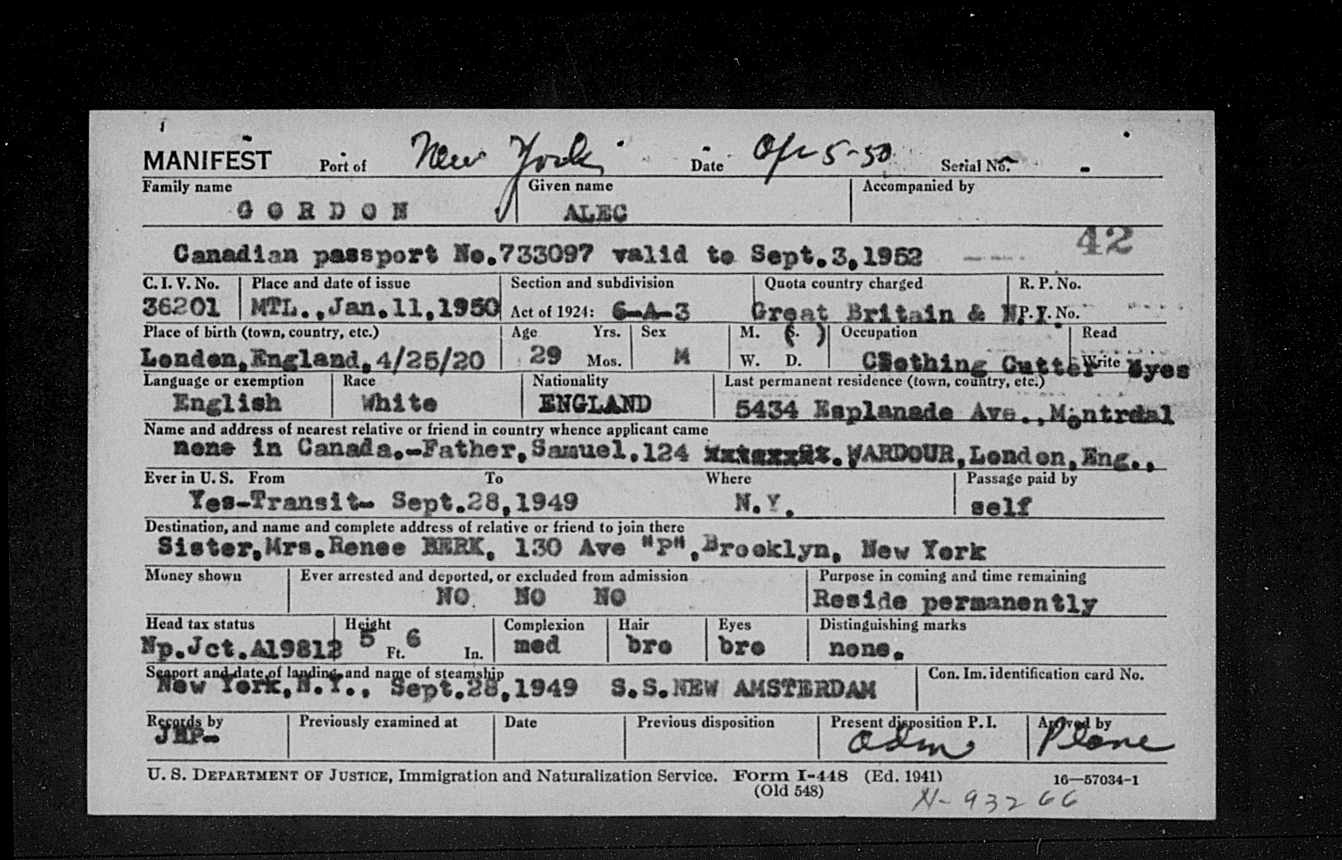 MANIFEST Port of New York Date Apr 5-50 Serial No. -
Family name Given name Accompanied by
GORDON ALEC
Canadian passport No.733097 valid to Sept.3,1952 42
C. I. V. No. Place and date of issue Section and subdivision Quota country charged R. P. No.
36201 MTL.,Jan.11,1950 Act of 1924: 6-A-3 Great Britain & N P. V. No.
Place of birth (town, country, etc.) Age Yrs. Sex M. S. Occupation Read
London,England,4/25/20 29 Mos. M W. D. Clothing Cutter Write yes
Language or exemption Race Nationality Last permanent residence (town, country, etc.)
English White ENGLAND 5434 Esplanade Ave.,Montreal
Name and address of nearest relative or friend in country whence applicant came
none in Canada.-Father,Samuel.124 WARDOUR,London,Eng.,
Ever in U. S. From To Where Passage paid by
Yes-Transit- Sept.28,1949 N.Y. self
Destination, and name and complete address of relative or friend to join there
Sister,Mrs.Renee BERK, 130 Ave "P",Brooklyn, New York
Money shown Ever arrested and deported, or excluded from admission Purpose in coming and time remaining
NO NO NO Reside permanently
Head tax status Height Complexion Hair Eyes Distinguishing marks
Np.Jct.A19812 5 Ft. 6 In. med bro bro none.
Seaport and date of landing, and name of steamship Con. Im. identification card No.
New York,N.Y., Sept.28,1949 S.S.NEW AMSTERDAM
Records by Previously examined at Date Previous disposition Present disposition P. I. Arrived by
JHP- adm Plane
U. S. DEPARTMENT OF JUSTICE, Immigration and Naturalization Service. Form I-448 (Ed. 1941) 16—57034-1
(Old 548) N-93266